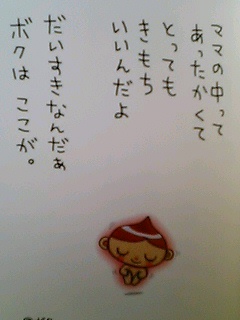 ママの中って
あったかくて
とっても
きもち
いいんだよ
だいすきなんだぁ
ボクは ここが。